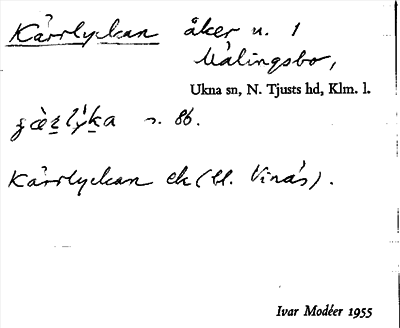 Kärrlyckan åker u. 1
Målingsbo,
Ukna sn, N. Tjusts hd, Klm. l.
s. 86.
Kärrlyckan ek (bl. Vinäs).
Ivar Modéer 1955